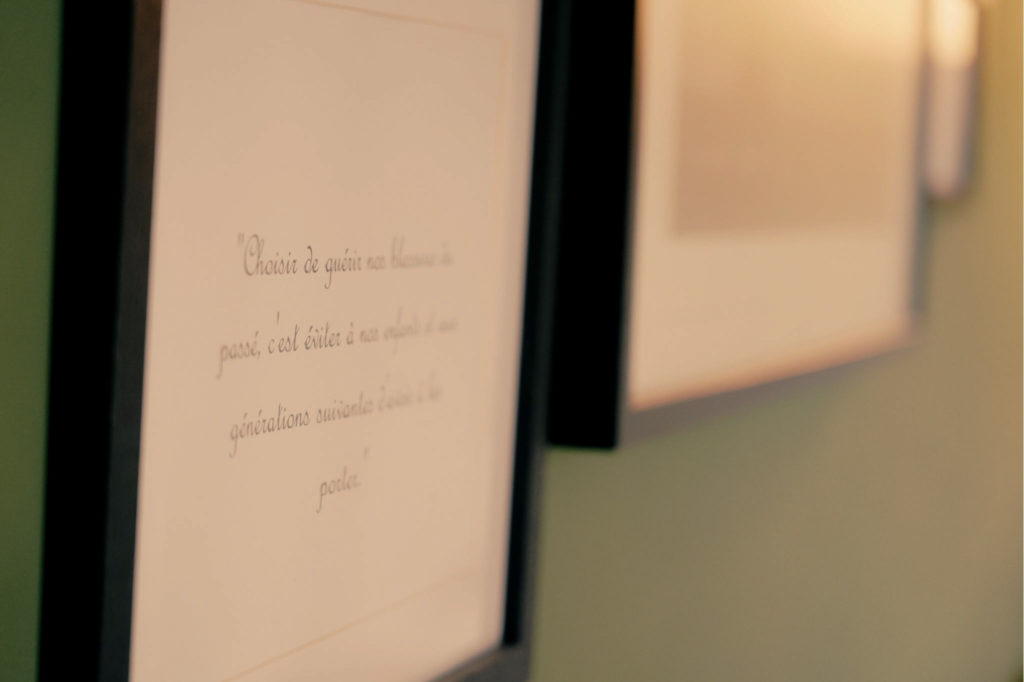 "Choisir de guérir nos blessures du
passé, c'est éviter à nos enfants et aux
générations suivantes d'avoir à les
porter."